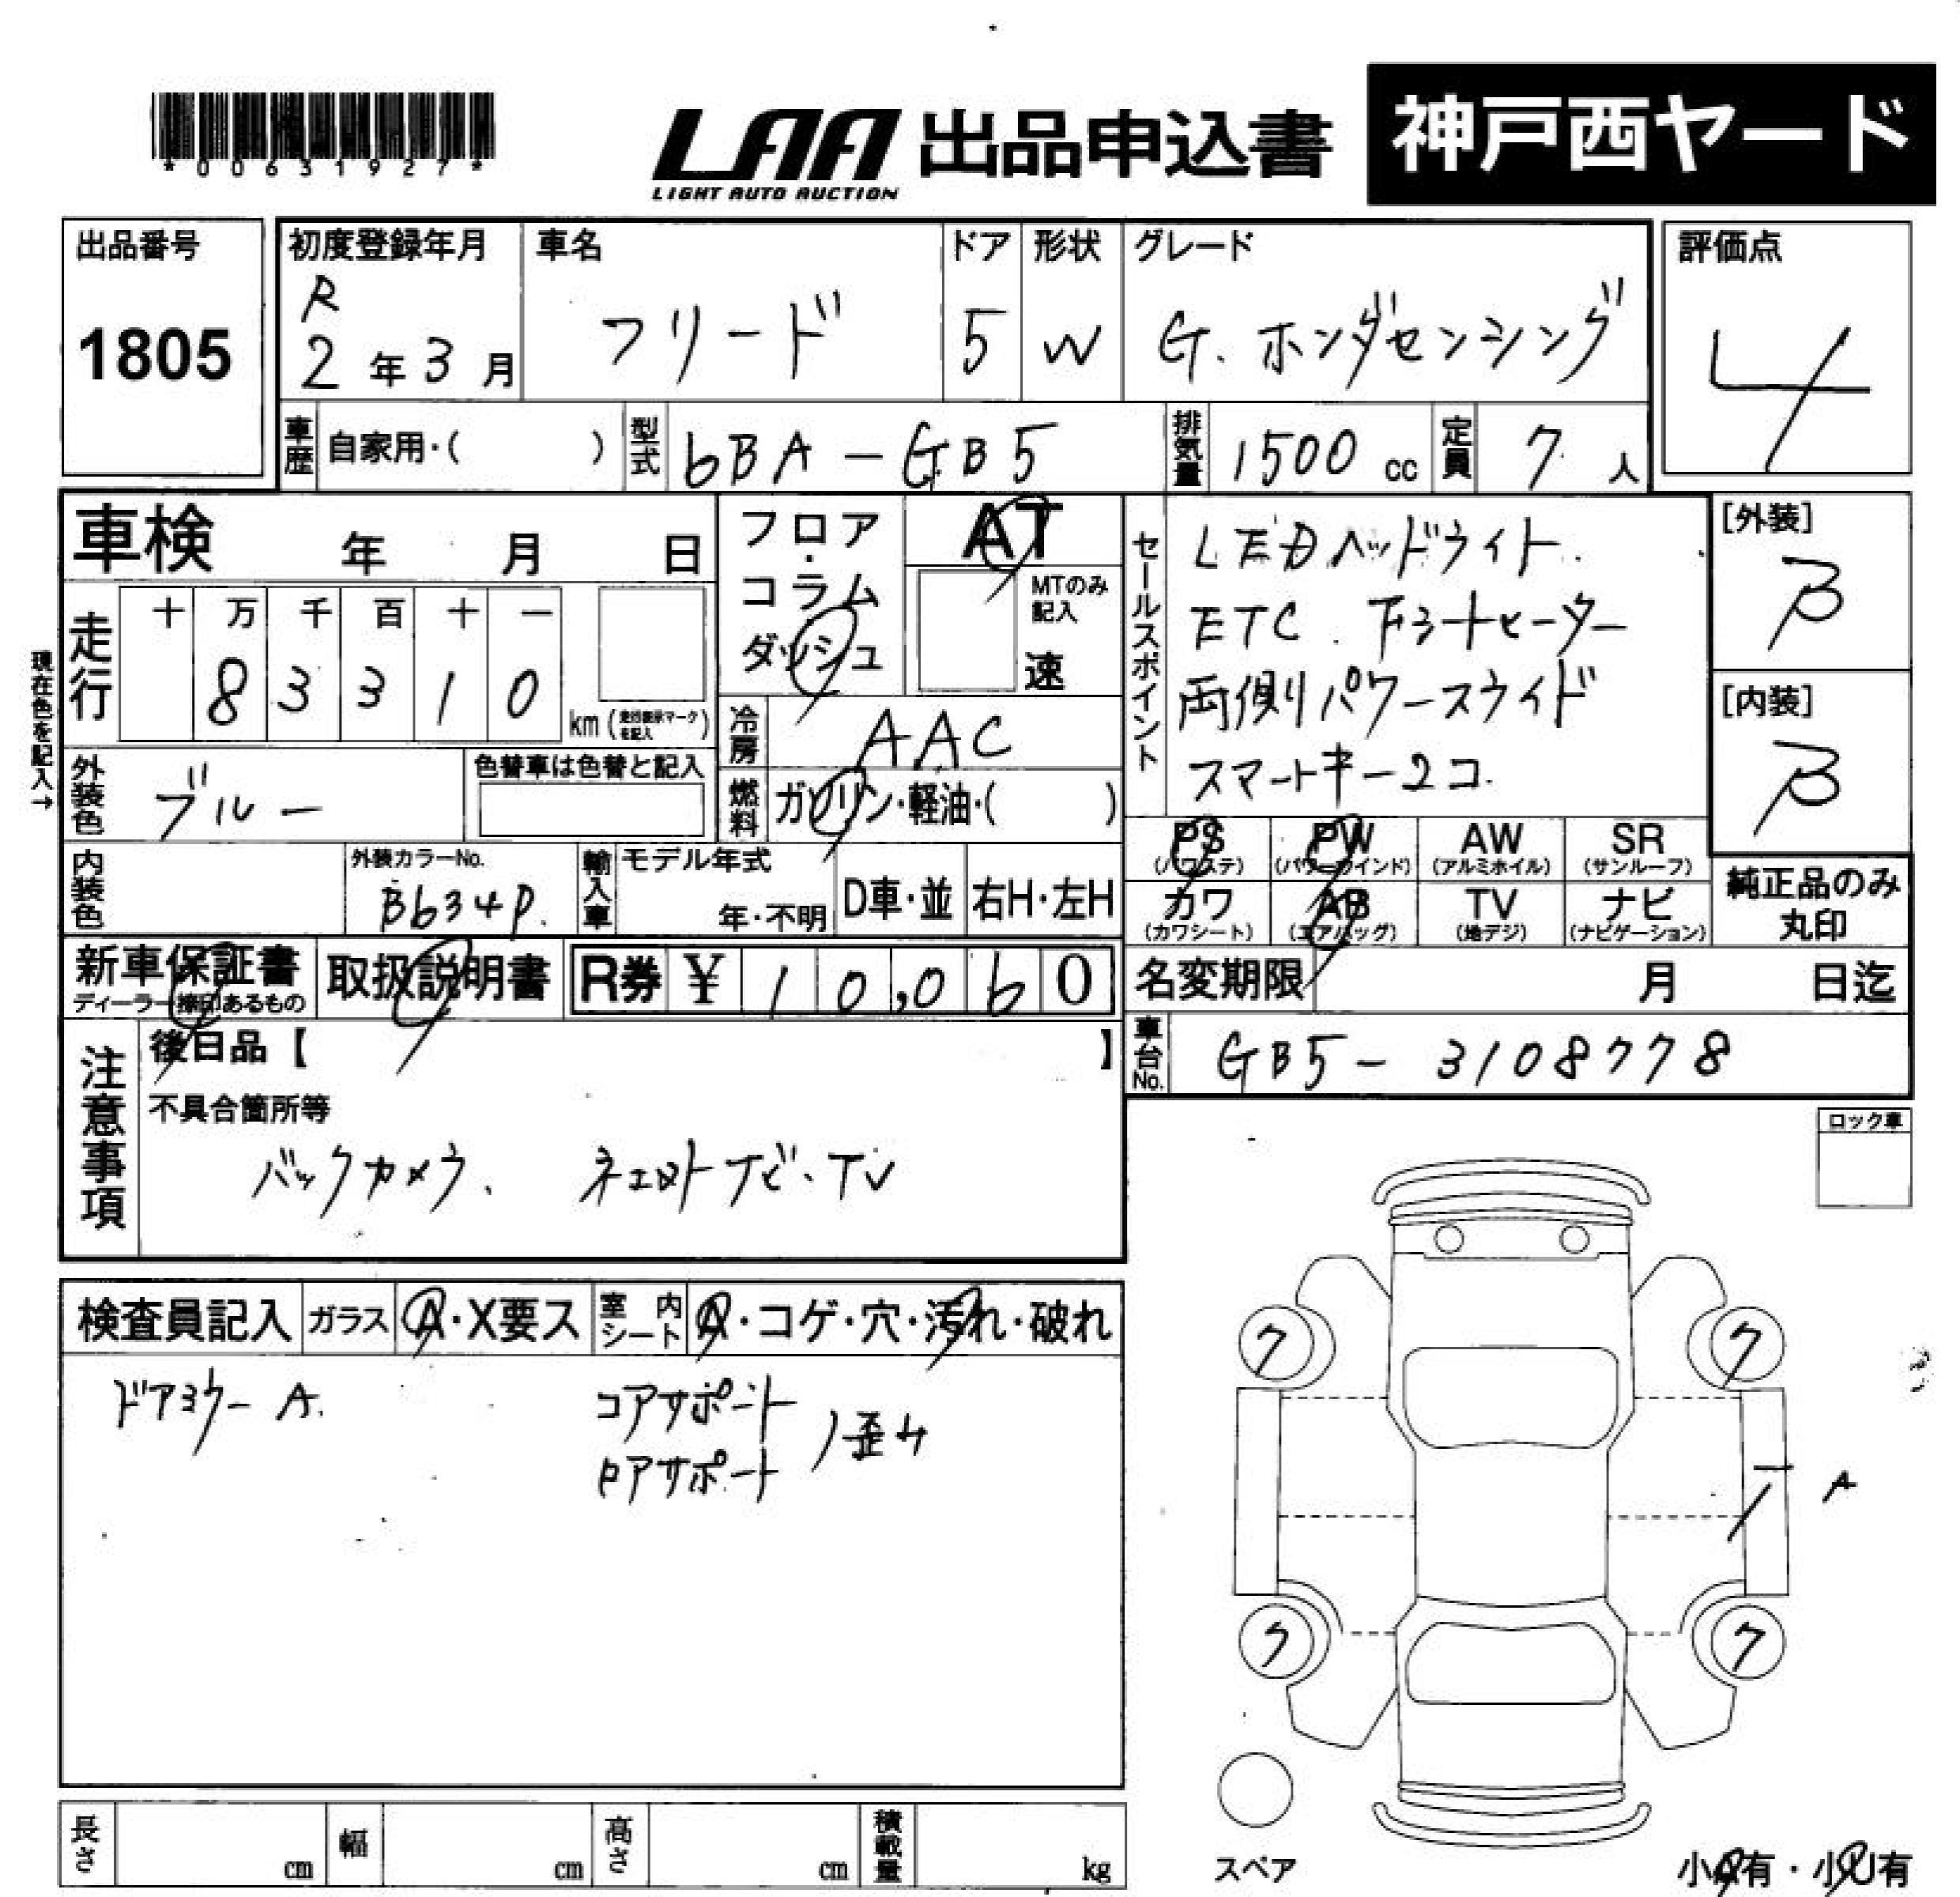 *00631927*
LAA 出品申込書 神戸西ヤード
LIGHT AUTO AUCTION
出品番号 初度登録年月 車名 ドア 形状 グレード 評価点
1805 R 2年3月 フリード 5 W G.ホンダセンシング 4
車歴 自家用・( ) 型式 6BA-GB5 排気量 1500 cc 定員 7人
車検 年 月 日
フロア・コラム ダッシュ
AT
MTのみ記入
速
セールスポイント
LEDヘッドライト.
両側パワースライド
スマートキー2コ.
[外装]
B
[内装]
B
現在色を記入→
走行 十 万 千 百 十 一
8 3 3 1 0
km
冷房 AAC
外装色 ブルー 色替車は色替と記入
燃料 ガソリン・軽油・( )
PS PW AW SR
(パワステ) (パワーウインド) (アルミホイル) (サンルーフ)
カワ AB TV ナビ
(カワシート) (エアバッグ) (地デジ) (ナビゲーション)
純正品のみ
丸印
内装色 外装カラーNo. B634P. 輸入車 モデル年式 年・不明 D車・並 右H・左H
新車保証書 取扱説明書 R券 ¥ 10,060
ディーラー捺印あるもの
名変期限 月 日迄
車台No. GB5-3108778
注意事項
後日品【 】
不具合箇所等
バックカメラ.
ナビ・TV
ロック車
検査員記入 ガラス A・X要ス 室内シート A・コゲ・穴・汚れ・破れ
ドアミラーA.
コアサポート
ロアサポート
歪み
ク ク
A
ク ク
スペア
小A有・小U有
長さ cm 幅 cm 高さ cm 積載量 kg